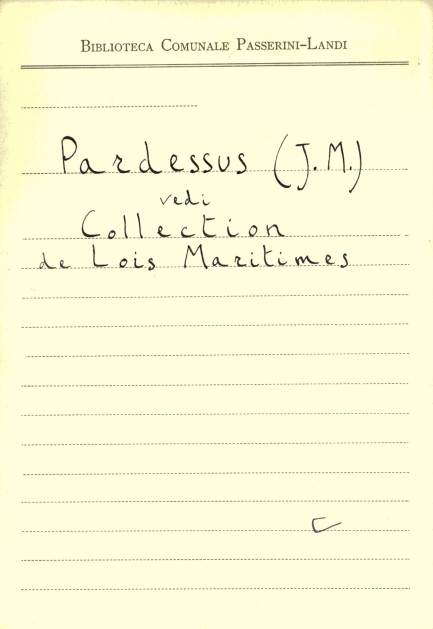 Biblioteca Comunale Passerini-Landi
Pardessus (J.M.)
vedi
Collection
de Lois Maritimes